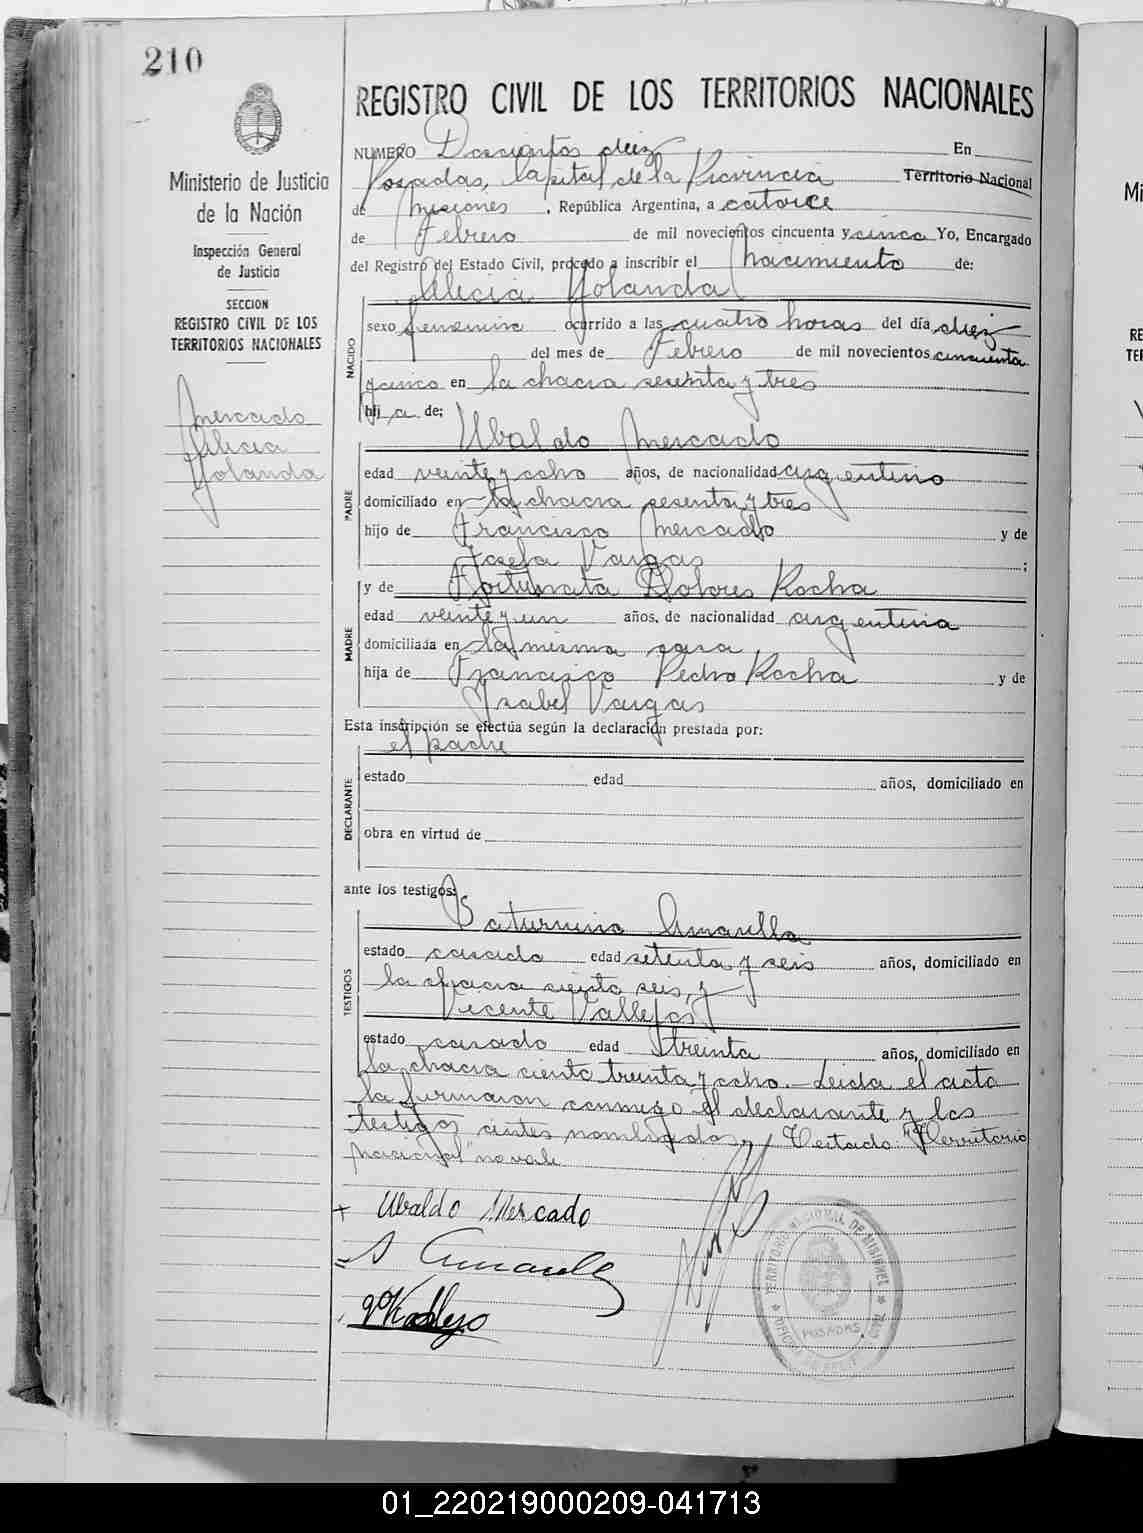 210
Ministerio de Justicia
de la Nación
Inspección General
de Justicia
SECCION
REGISTRO CIVIL DE LOS
TERRITORIOS NACIONALES
Mercado
Alicia
Yolanda
REGISTRO CIVIL DE LOS TERRITORIOS NACIONALES
NUMERO Doscientos diez En
Posadas, Capital de la Provincia Territorio Nacional
de Misiones , República Argentina, a catorce
de Febrero de mil novecientos cincuenta y cinco Yo, Encargado
del Registro del Estado Civil, procedo a inscribir el nacimiento de:
Alicia Yolanda
NACIDO
sexo femenino ocurrido a las cuatro horas del día diez
del mes de Febrero de mil novecientos cincuenta
y cinco en la chacra sesenta y tres
hij a de:
Ubaldo Mercado
PADRE
edad veinte y ocho años, de nacionalidad argentino
domiciliado en la chacra sesenta y tres
hijo de Francisco Mercado y de
Josefa Vargas ;
y de Fortunata Dolores Rocha
MADRE
edad veinte y un años, de nacionalidad argentina
domiciliada en la misma casa
hija de Francisco Pedro Rocha y de
Isabel Vargas
Esta inscripción se efectúa según la declaración prestada por:
el padre
DECLARANTE
estado edad años, domiciliado en
obra en virtud de
ante los testigos:
Saturnino Amarilla
TESTIGOS
estado casado edad setenta y seis años, domiciliado en
la chacra ciento seis, y
Vicente Vallejos
estado casado edad treinta años, domiciliado en
la chacra ciento treinta y ocho.- Leida el acta
la firmaron conmigo el declarante y los
testigos antes nombrados, Testado: "Territorio
Nacional" no vale
Ubaldo Mercado
S Amarilla
TERRITORIO NACIONAL DE MISIONES
POSADAS
01_220219000209-041713